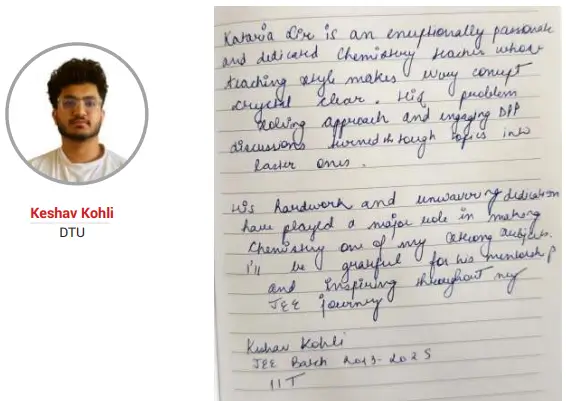 Keshav Kohli
DTU
Kataria Sir is an exceptionally passionate
and dedicated Chemistry teacher whose
teaching style makes every concept
crystal clear. His problem
solving approach and engaging DPP
discussions turned tough topics into
easier ones.
His hardwork and unwavering dedication
have played a major role in making
Chemistry one of my strong subjects.
I'll be grateful for his mentorship
and inspiring throughout my
JEE journey
Keshav Kohli
JEE Batch 2023-2025
IIT